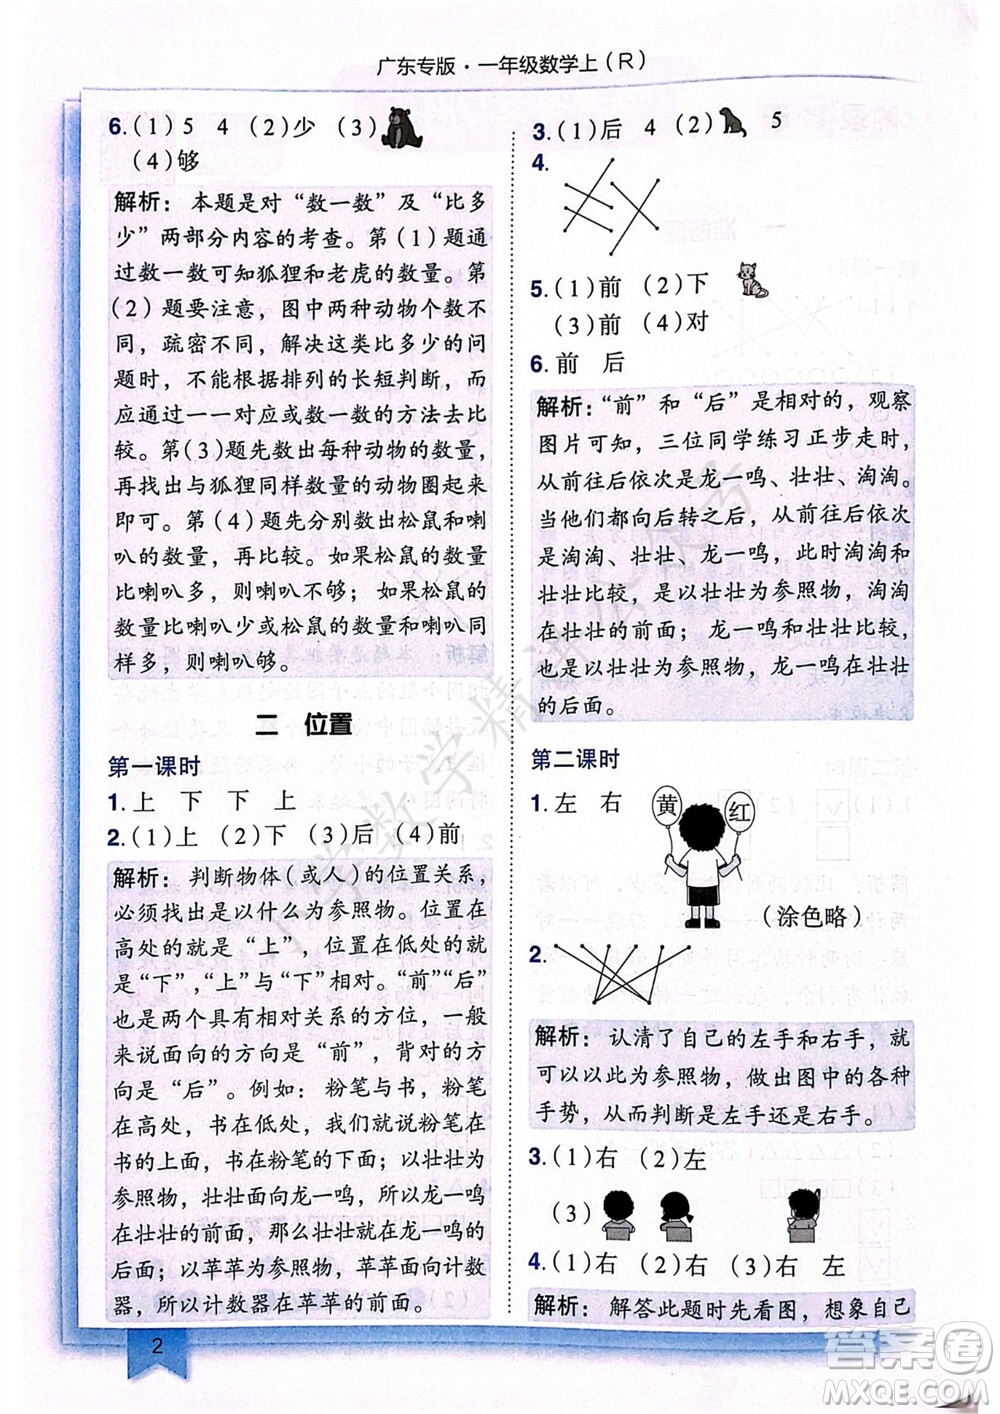 广东专版·一年级数学上（R）
6.(1)5 4 (2)少 (3)
(4)够
解析：本题是对“数一数”及“比多
少”两部分内容的考查。第(1)题通
过数一数可知狐狸和老虎的数量。第
(2)题要注意，图中两种动物个数不
同，疏密不同，解决这类比多少的问
题时，不能根据排列的长短判断，而
应通过一一对应或数一数的方法去比
较。第(3)题先数出每种动物的数量，
再找出与狐狸同样数量的动物圈起来
即可。第(4)题先分别数出松鼠和喇
叭的数量，再比较。如果松鼠的数量
比喇叭多，则喇叭不够；如果松鼠的
数量比喇叭少或松鼠的数量和喇叭同
样多，则喇叭够。
二 位置
第一课时
1.上 下 下 上
2.(1)上 (2)下 (3)后 (4)前
解析：判断物体(或人)的位置关系，
必须找出是以什么为参照物。位置在
高处的就是“上”，位置在低处的就
是“下”，“上”与“下”、“前”“后”
也是两个具有相对关系的方位，一般
来说面向的方向是“前”，背对的方
向是“后”。例如：粉笔与书，粉笔
在高处，书在低处，所以粉笔在书的
上面，书在粉笔的下面；以壮壮为
参照物，壮壮面向龙一鸣，所以龙一鸣
在壮壮的前面，那么壮壮在龙一鸣的
后面；以苹苹为参照物，苹苹面向计数
器，所以计数器在苹苹的前面。
3.(1)后 4 (2) 5
4.
5.(1)前 (2)下
(3)前 (4)对
6.前 后
解析：“前”和“后”是相对的，观察
图片可知，三位同学练习正步走时，
从前往后依次是龙一鸣、壮壮、淘淘。
当他们都向后转之后，从前往后依次
是淘淘、壮壮、龙一鸣，此时淘淘和
壮壮比较，是以壮壮为参照物，淘淘
在壮壮的前面；龙一鸣和壮壮比较，
也是以壮壮为参照物，龙一鸣在壮壮
的后面。
第二课时
1.左 右 黄 红
(涂色略)
2.
解析：认清了自己的左手和右手，就
可以以此为参照物，做出图中的各种
手势，从而判断是左手还是右手。
3.(1)右 (2)左
(3)
4.(1)右 (2)右 (3)右 左
解析：解答此题时先看图，想象自己
2
答案圈
MXQE.COM